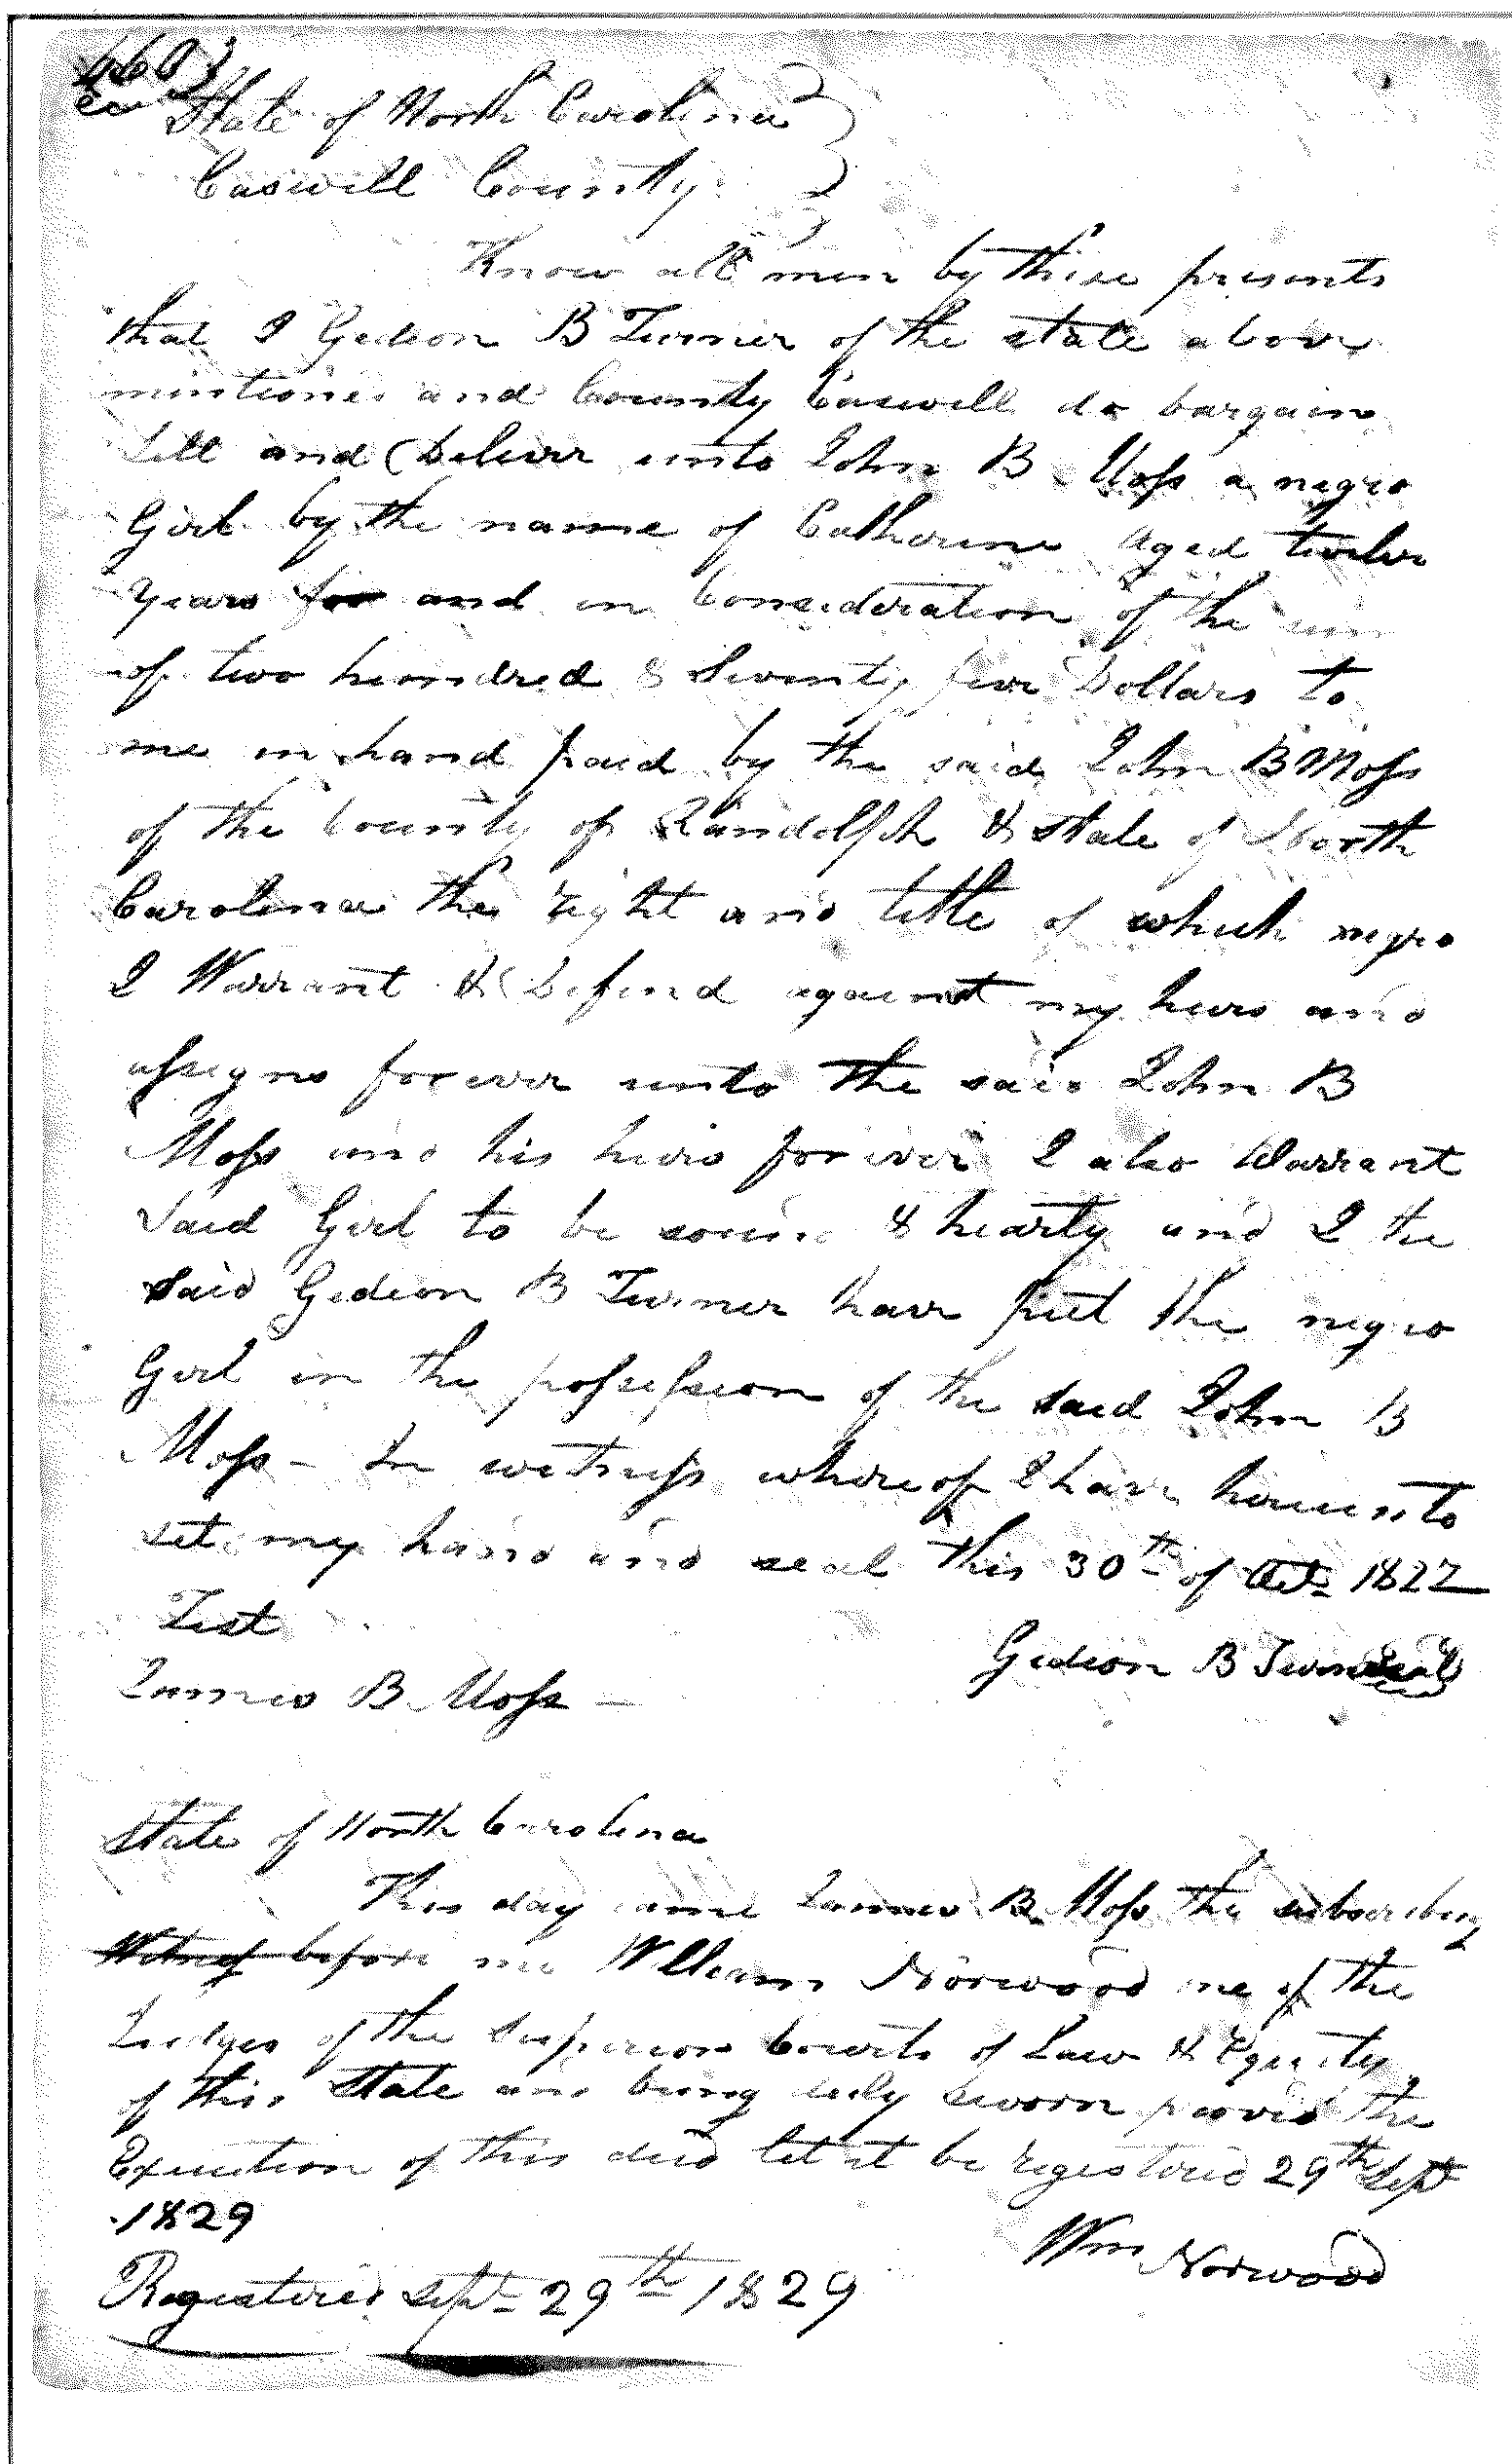 State of North Carolina
Caswell County
Know all men by these presents
that I Gedeon B Turner of the state above
mentioned and County Caswell do bargain
Sell and Deliver unto John B Moss a negro
Girl by the name of Catherine Aged twelve
Years for and in Consideration of the sum
of two hundred & Seventy five Dollars to
me in hand paid by the said John B Moss
of the County of Randolph & state of North
Carolina the right and title of which negro
I Warrant & Defend against my heirs and
assigns forever unto the said John B
Moss and his heirs forever I also Warrant
Said Girl to be sound & hearty and I the
Said Gedeon B Turner have put the negro
Girl in the possession of the said John B
Moss - In witness whereof I have hereunto
set my hand and seal this 30th of Oct 1822
Test
Gedeon B Turner seal
James B Moss -
State of North Carolina
This day came James B Moss the subscribing
Witness before me William Norwood one of the
Judges of the Superior Courts of Law & Equity
of this State and being duly sworn proved the
Execution of this deed let it be registered 29th Sept
1829
Wm Norwood
Registered Sept 29th 1829